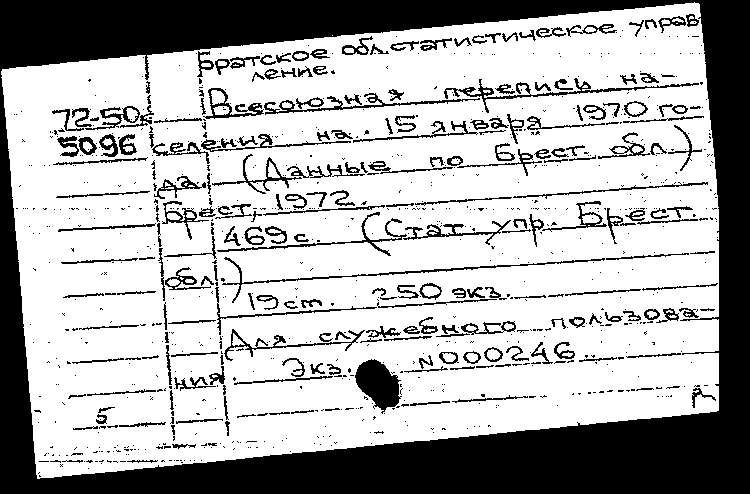 Братское обл. статистическое управ
ление.
Всесоюзная перепись на-
72-50к
5096 селения на 15 января 1970 го-
да. (Данные по Брест. обл.)
Брест, 1972.
469 с. (Стат. упр. Брест.
обл.)
19 см. 250 экз.
Для служебного пользова-
ния. Экз. N000246.
5